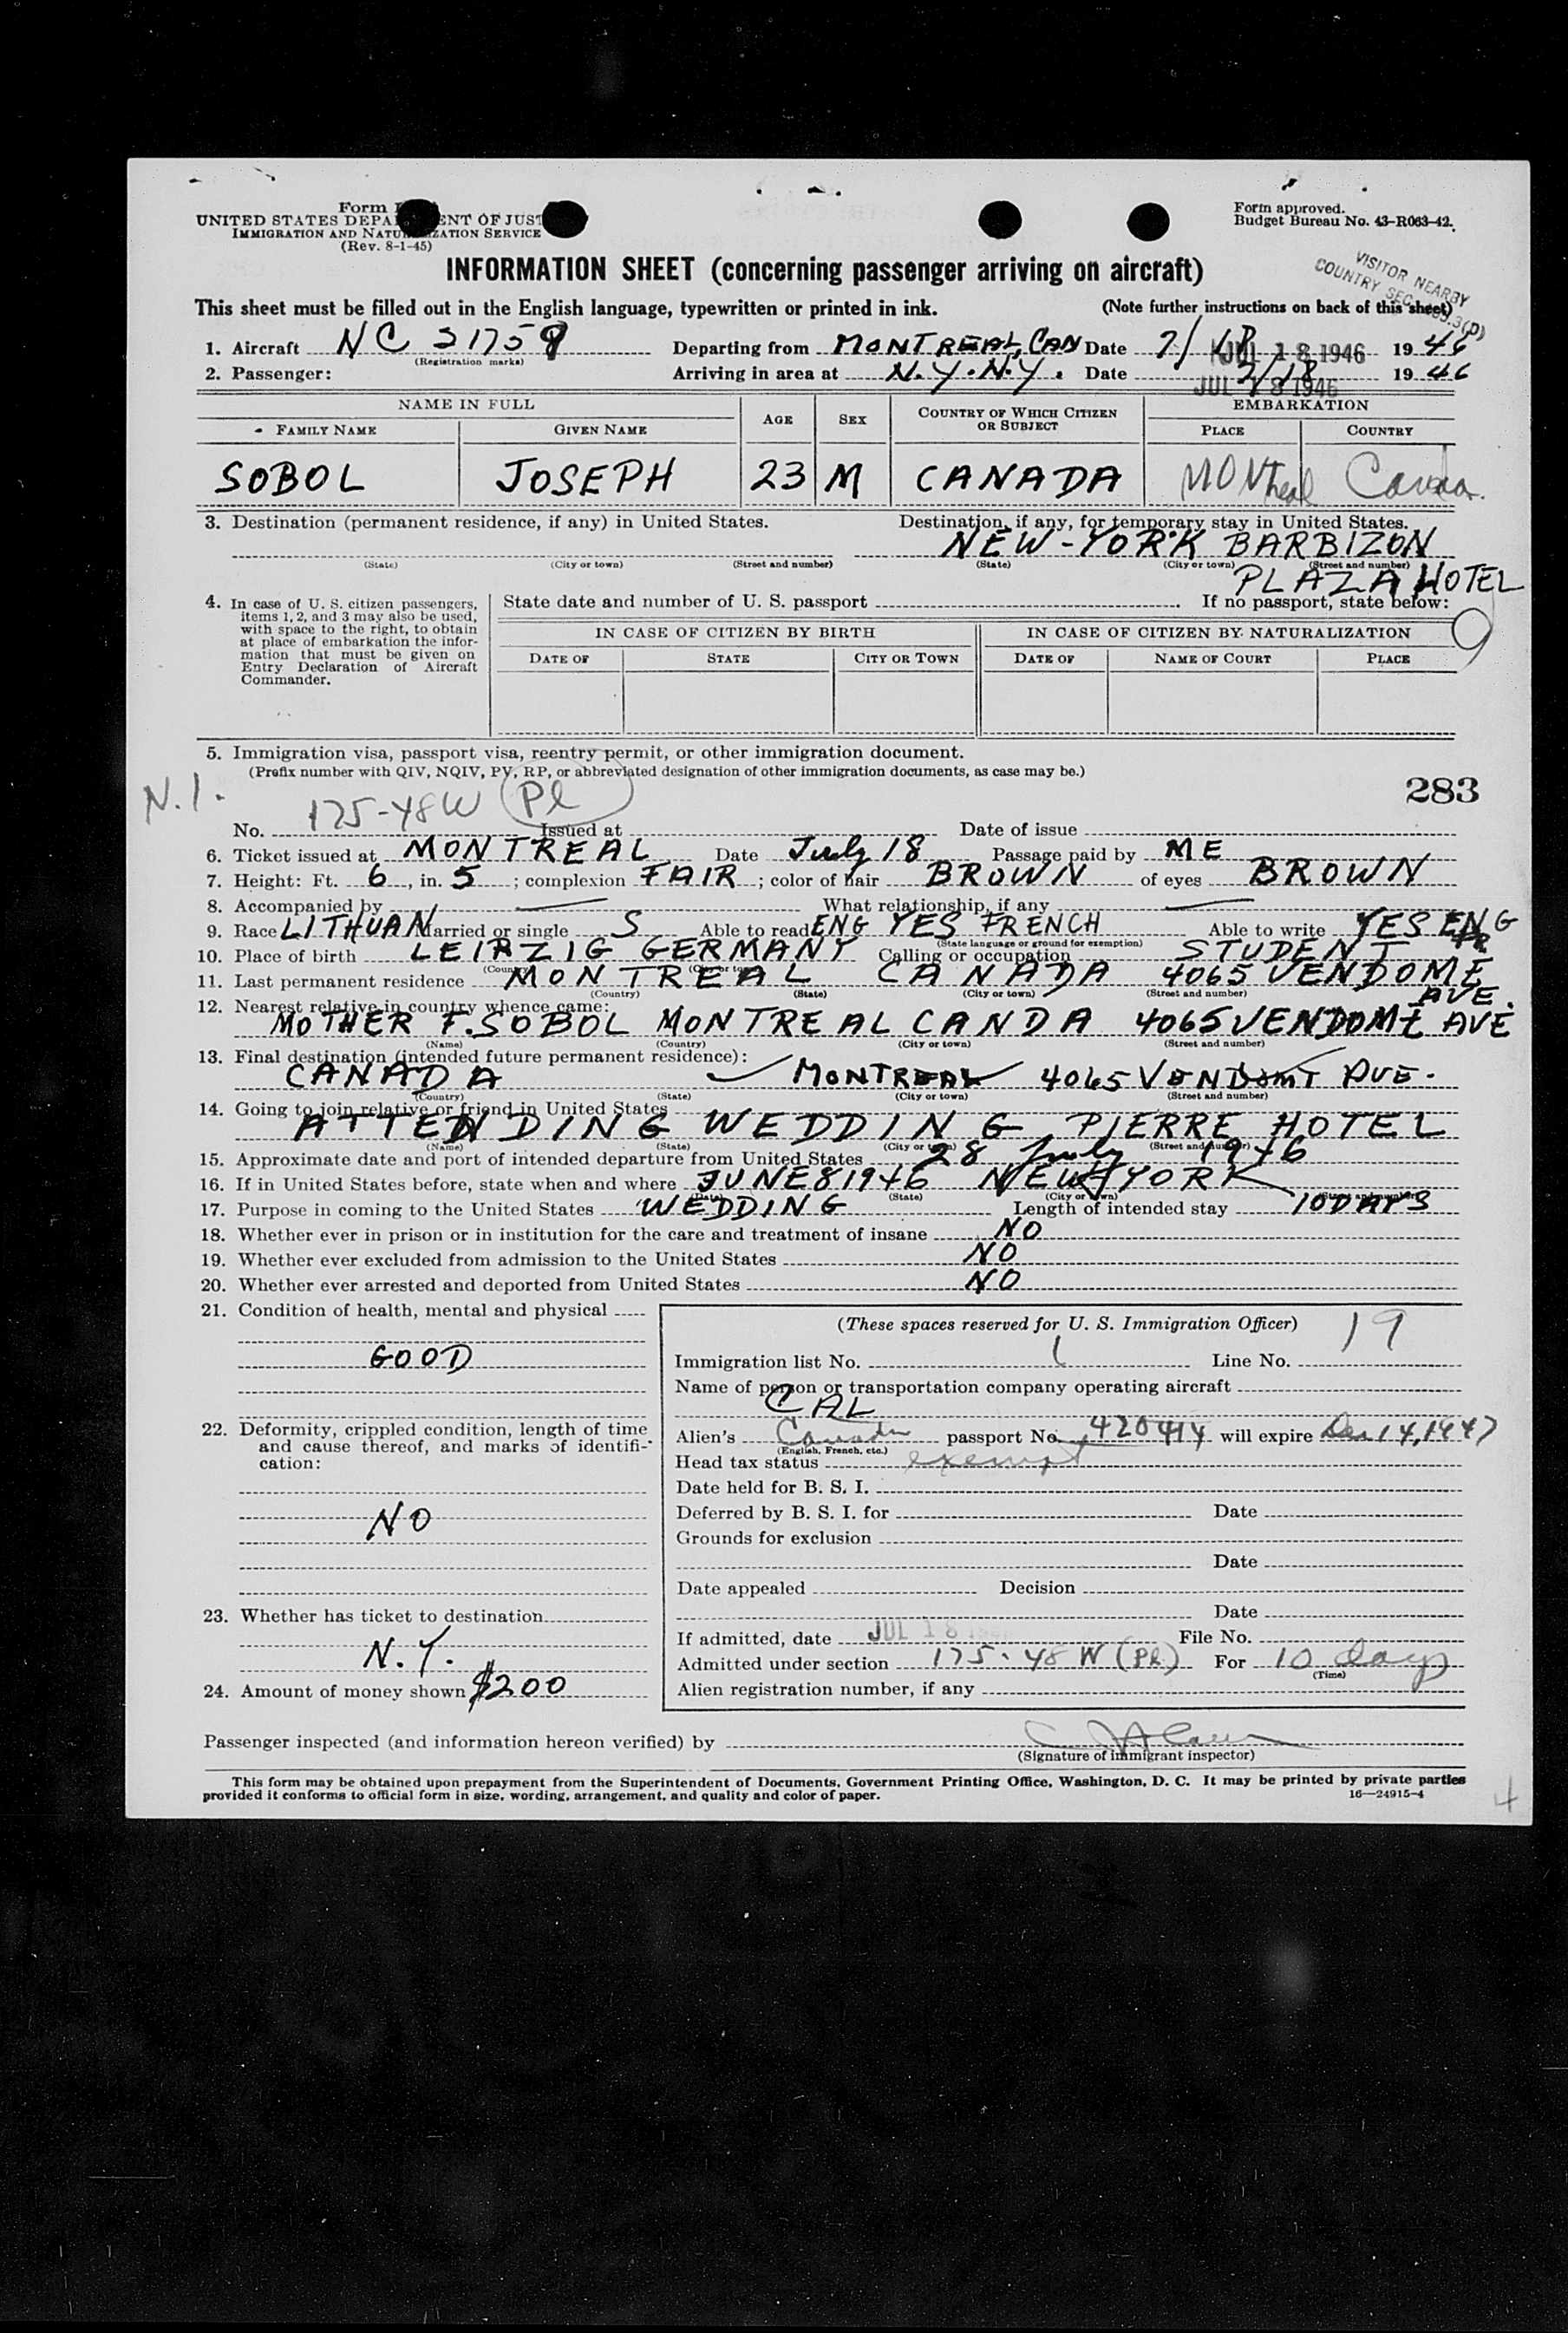 Form
UNITED STATES DEPA ENT OF JUST
IMMIGRATION AND NATU ZATION SERVICE
(Rev. 8-1-45)
Form approved.
Budget Bureau No. 43-R063-42.
INFORMATION SHEET (concerning passenger arriving on aircraft)
VISITOR NEARBY
COUNTRY SEC.
This sheet must be filled out in the English language, typewritten or printed in ink. (Note further instructions on back of this sheet)
1. Aircraft NC Departing from MONTREAL, CAN Date 7/18 JUL 18 1946 1946
(Registration marks)
2. Passenger: Arriving in area at N.Y. N.Y. Date 7/18 JUL 18 1946 1946
NAME IN FULL AGE SEX COUNTRY OF WHICH CITIZEN OR SUBJECT EMBARKATION
FAMILY NAME GIVEN NAME PLACE COUNTRY
SOBOL JOSEPH 23 M CANADA MONTreal Canada
3. Destination (permanent residence, if any) in United States. Destination, if any, for temporary stay in United States.
NEW-YORK BARBIZON
(State) (City or town) (Street and number) (State) (City or town) (Street and number)
PLAZA HOTEL
4. In case of U. S. citizen passengers,
items 1, 2, and 3 may also be used,
with space to the right, to obtain
at place of embarkation the infor-
mation that must be given on
Entry Declaration of Aircraft
Commander.
State date and number of U. S. passport . If no passport, state below:
9
IN CASE OF CITIZEN BY BIRTH IN CASE OF CITIZEN BY NATURALIZATION
DATE OF STATE CITY OR TOWN DATE OF NAME OF COURT PLACE
5. Immigration visa, passport visa, reentry permit, or other immigration document.
(Prefix number with QIV, NQIV, PV, RP, or abbreviated designation of other immigration documents, as case may be.)
N.I. 283
No. 175-48W (Pl) Issued at Date of issue
6. Ticket issued at MONTREAL Date July 18 Passage paid by ME
7. Height: Ft. 6, in. 5; complexion FAIR; color of hair BROWN of eyes BROWN
8. Accompanied by — What relationship, if any —
9. Race LITHUAN Married or single S Able to read ENG YES FRENCH Able to write YES ENG FR
(State language or ground for exemption)
10. Place of birth LEIPZIG GERMANY Calling or occupation STUDENT
(Country) (City or town)
11. Last permanent residence MONTREAL CANADA 4065 VENDOME AVE.
(Country) (State) (City or town) (Street and number)
12. Nearest relative in country whence came:
MOTHER F. SOBOL MONTREAL CANDA 4065 VENDOME AVE
(Name) (Country) (City or town) (Street and number)
13. Final destination (intended future permanent residence):
CANADA MONTREAL 4065 VENDOMT AVE.
(Country) (State) (City or town) (Street and number)
14. Going to join relative or friend in United States
ATTENDING WEDDING PIERRE HOTEL
(Name) (State) (City or town) (Street and number)
15. Approximate date and port of intended departure from United States 28 July 1946
16. If in United States before, state when and where JUNE 8 1946 NEW YORK
(Date) (State) (City or town) (Street and number)
17. Purpose in coming to the United States WEDDING Length of intended stay 10 DAYS
18. Whether ever in prison or in institution for the care and treatment of insane NO
19. Whether ever excluded from admission to the United States NO
20. Whether ever arrested and deported from United States NO
21. Condition of health, mental and physical
GOOD
22. Deformity, crippled condition, length of time
and cause thereof, and marks of identifi-
cation:
NO
23. Whether has ticket to destination
N.Y.
24. Amount of money shown $200
(These spaces reserved for U. S. Immigration Officer)
Immigration list No. 1 Line No. 19
Name of person or transportation company operating aircraft
CAL
Alien's Canada passport No. 420414 will expire Dec 14, 1947
(English, French, etc.)
Head tax status exempt
Date held for B. S. I.
Deferred by B. S. I. for Date
Grounds for exclusion
Date
Date appealed Decision
Date
If admitted, date JUL 18 File No.
Admitted under section 175-48 W (Pl) For 10 days
(Time)
Alien registration number, if any
Passenger inspected (and information hereon verified) by
(Signature of immigrant inspector)
This form may be obtained upon prepayment from the Superintendent of Documents, Government Printing Office, Washington, D. C. It may be printed by private parties
provided it conforms to official form in size, wording, arrangement, and quality and color of paper. 16—24915-4
4